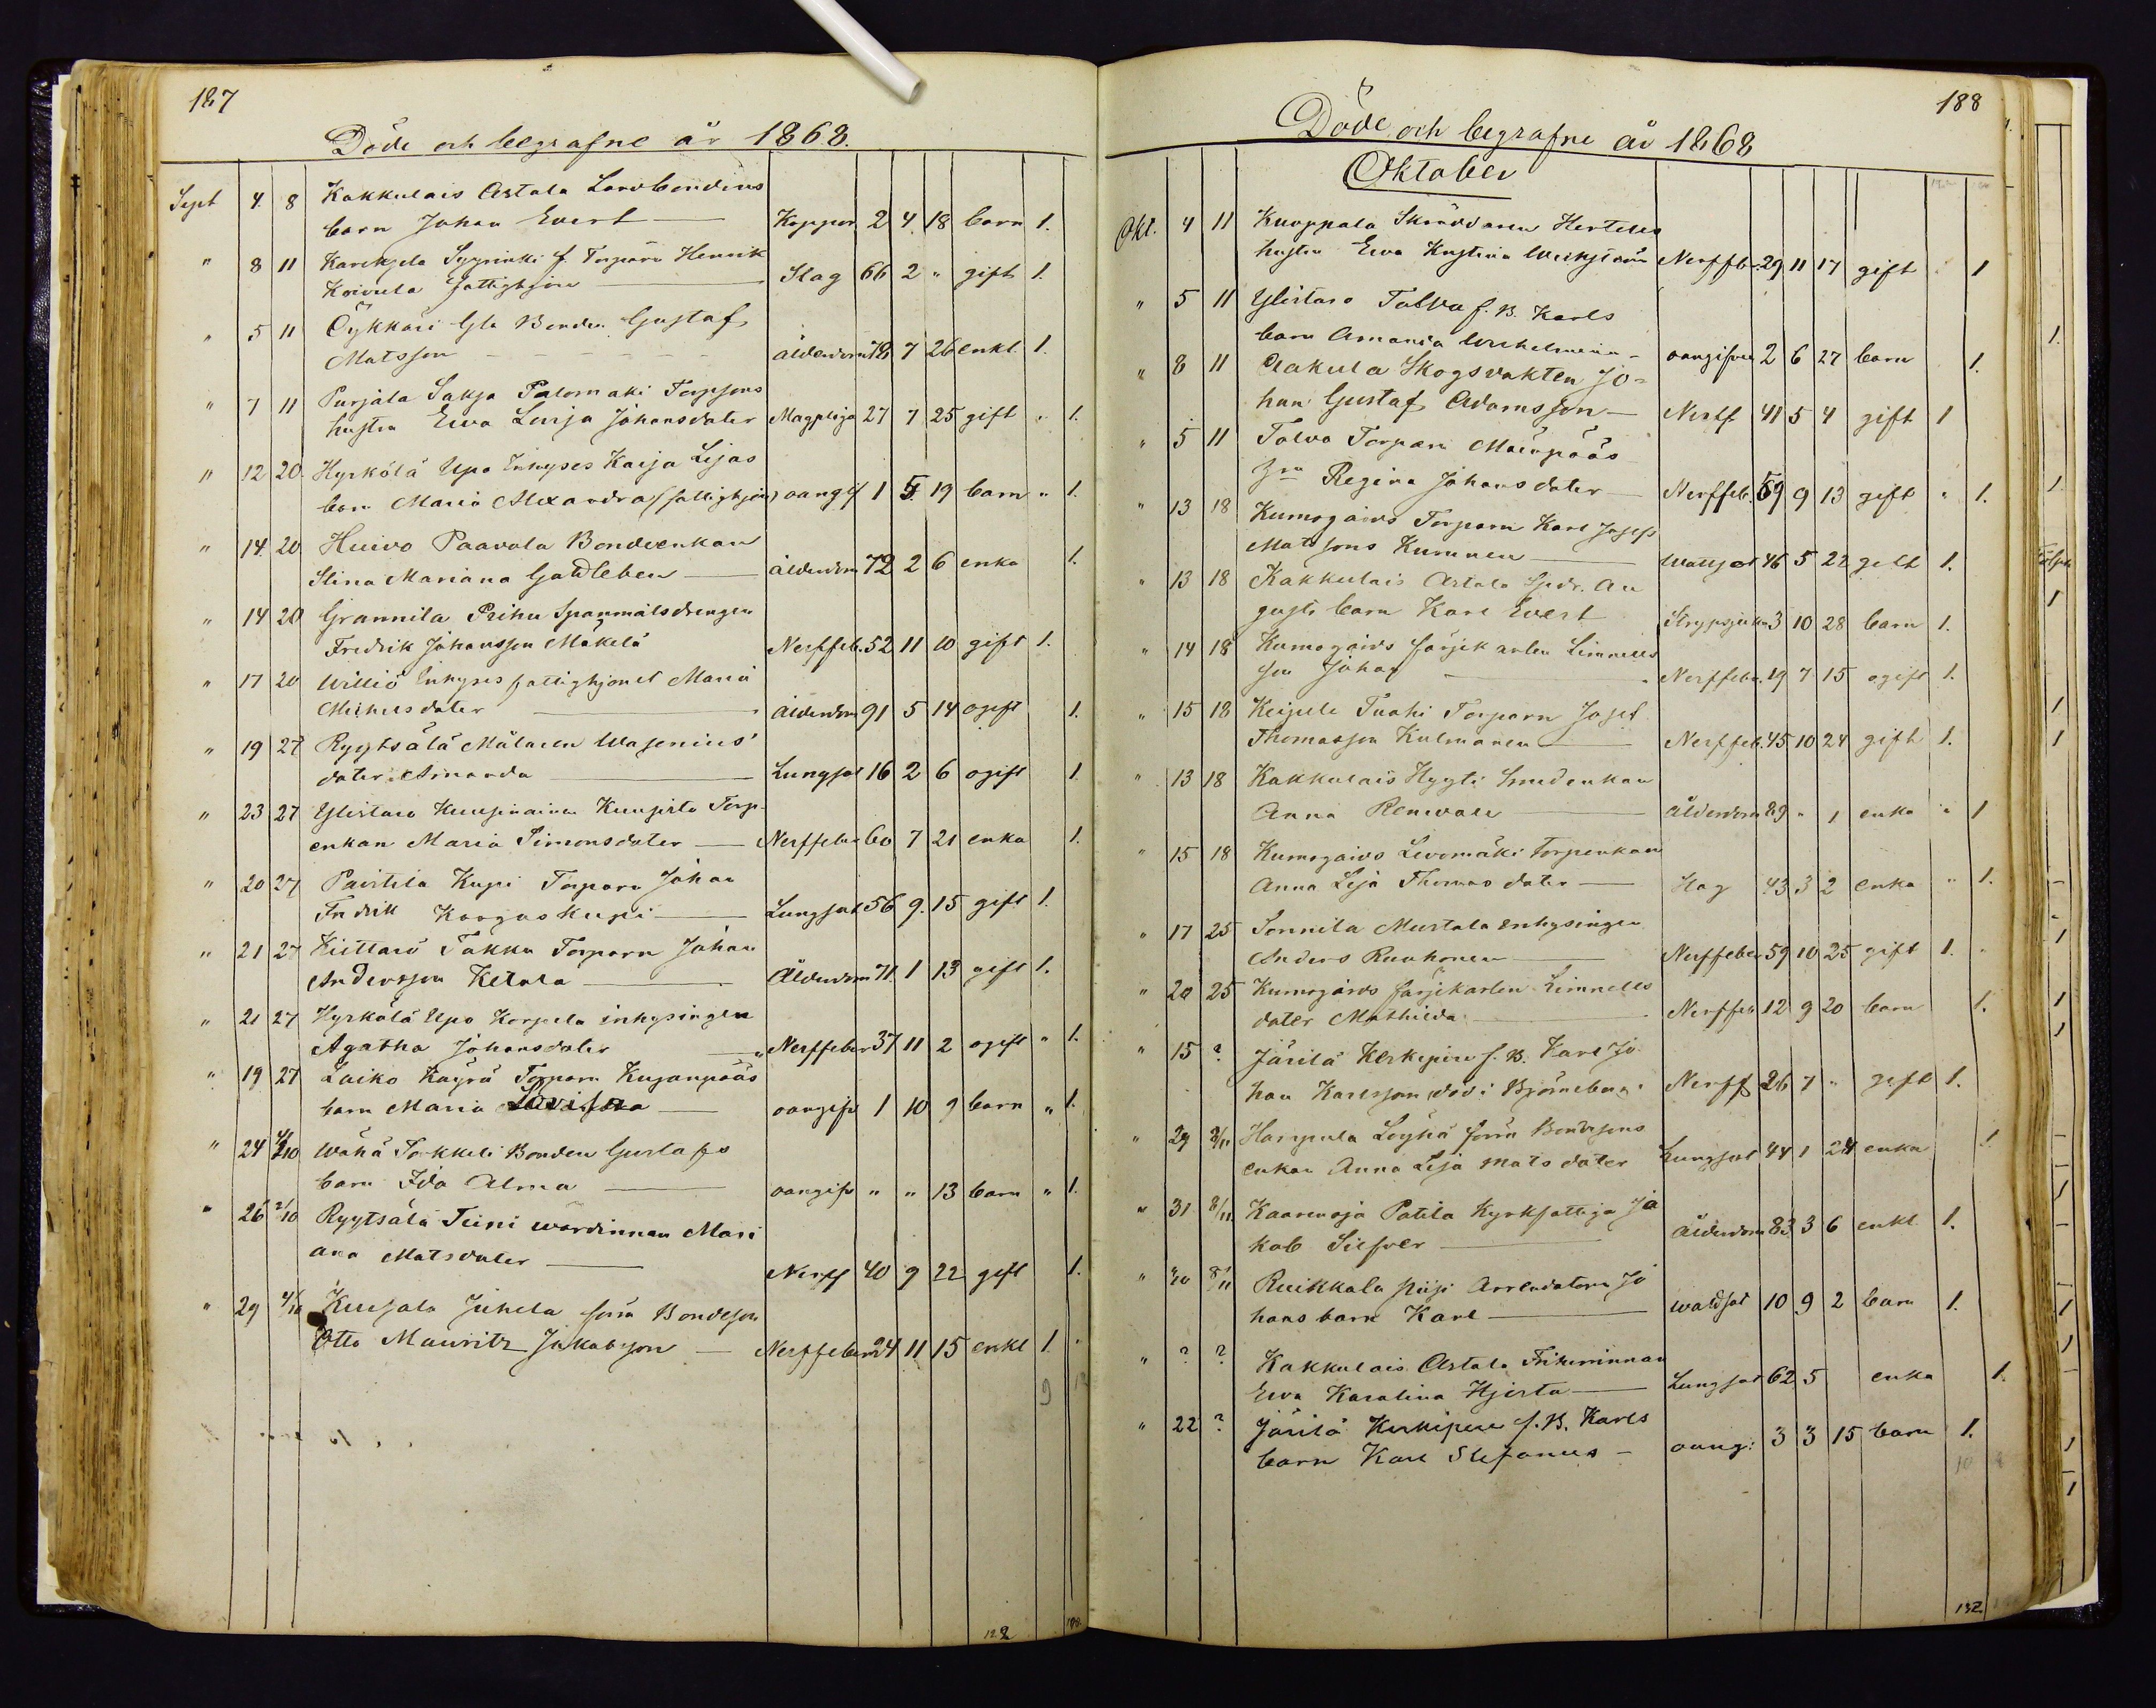 187
Döde och begrafne år 1868.
Sept 4. 8 Kakkulais Astala Landbondens
barn Johan Evert Koppor 2 4 18 barn 1.
" 8 11 Karekjela Torparn Henrik
Koivula fattighjon Slag 66 2 " gift 1.
" 5 11 Öykkäri Gla Bonden Gustaf
Matsson ålderdom 78 7 26 enkl. 1.
" 7 11 Purjala Sakja Palomaki Torpsons
hustru Ewa Lovisa Johansdater Magplåga 27 7 25 gift " 1.
" 12 20. Hyrkölä Upo Inhyses Kaisa Lisas
barn Maria Alexandra (fattighjon) oangif 1 5 19 barn " 1.
" 14. 20 Huivo Paavola Bondeenkan
Stina Mariana Gottleben ålderdom 72 2 6 enka 1.
" 14 20 Grannila Prihu Spanmålsdrengen
Fredrik Johansson Mäkelä Nerffeb. 52 11 10 gift 1.
" 17 20 Williö Inhyses fattighjonet Maria
Michelsdater ålderdom 91 5 14 ogift 1.
" 19 27 Ryytsälä Målaren Wasenius'
dater Amanda Lungsot 16 2 6 ogift 1.
" 23 27 Ylistaro Kuusinainen Kuusisto Torp-
enkan Maria Simonsdater Nerffeber 60 7 21 enka 1.
" 20 27 Pavitila Kupi Torparn Johan
Fredrik Korgas Kupi Lungsot 56 9. 15 gift 1.
" 21 27 Kiettarö Takku Torparn Johan
Andersson Ketola Ålderdom 71. 1 13 gift 1.
" 21 27 Hyrkölä Upo Korpela inhysingen
Agatha Johansdater " Nerffeber 37 11 2 ogift " 1.
" 19 27 Laiko Käyrä Torparn Kujanpääs
barn Maria Lovisa oangif 1 10 9 barn " 1.
" 24 4/10 Wähä Takkeli Bonden Gustafs
barn Ida Alma oangif " " 13 barn " 1.
" 26 4/10 Ryytsälä Teini wärdinnan Mari
ana Matsdater Nerff 40 9 22 gift 1.
" 29 4/10 Kuusala Juhela förra Bondeson
Otto Mauritz Jakobsson Nerffeber 24 11 15 enkl 1.
9
122
188
Döde och begrafne år 1868
Oktober
Okt. 4 11 Kuoppala Skräddaren Hertells
hustru Ewa Kristina Wickström Nerffeb. 29 11 17 gift 1
" 5 11 Ylistaro Talva f. B. Karls
barn Amanda Wilhelmina oangifven 2 6 27 barn 1.
" 8 11 Aakula Skogsvakten Jo-
han Gustaf Adamsson Nerff. 41 5 4 gift 1
" 5 11 Talvo Torparn Mäenpääs
Regina Johansdater Nerffeb. 59 9 13 gift " 1.
" 13 18 Kumogårds Torparn Karl Josef
Matssons Kummen Wattsot 46 5 22 gift 1.
" 13 18 Kakkulais Astala Au
gusts barn Karl Evert Strypsjukan 3 10 28 barn 1.
" 14 18 Kumogårds färjekarlen Limnells
son Johan Nerffeber. 19 7 15 ogift 1.
" 15 18 Keipile Tuohi Torparn Josef
Thomasson Kulmanen Nerffeb. 45 10 24 gift 1.
" 13 18 Kakkulais Hyyti Smedenkan
Anna Renwall Ålderdom 89 " 1 enka " 1
" 15 18 Kumogårds Levomäki torpenkan
Anna Lisa Thomasdater Slag 43 3 2 enka " 1.
" 17 25 Sonnila Murtala inhysingen
Anders Ruuhonen Nerffeber 59 10 25 gift 1.
" 20 25 Kumogårds färjekarlen Limnells
dater Mathilda Nerffeb 12 9 20 barn 1.
" 15 ? Järilä Kerkipere f. B. Karl Jo
han Karlsson död i Björneborg Nerff 26 7 " gift 1.
" 29 8/11 Harjula Löyhä förra Bondesons
enkan Anna Lisa Matsdater Lungsot 44 1 24 enka 1
" 31 8/11 Kaarenoja Patila Kyrkfattiga Ja
kob Silfver ålderdom 83 3 6 enkl 1.
" 8/11 Ruikkala Piisi Arrendatorn Jo
hans barn Karl wattsot 10 9 2 barn 1.
" ? ? Kakkulais Astala Frikvinnan
Ewa Karolina Hjerta Lungsot 62 5 enka 1.
" 22 ? Järilä Kerkipere f. B. Karls
barn Karl Stefanus oang: 3 3 15 barn 1.
132